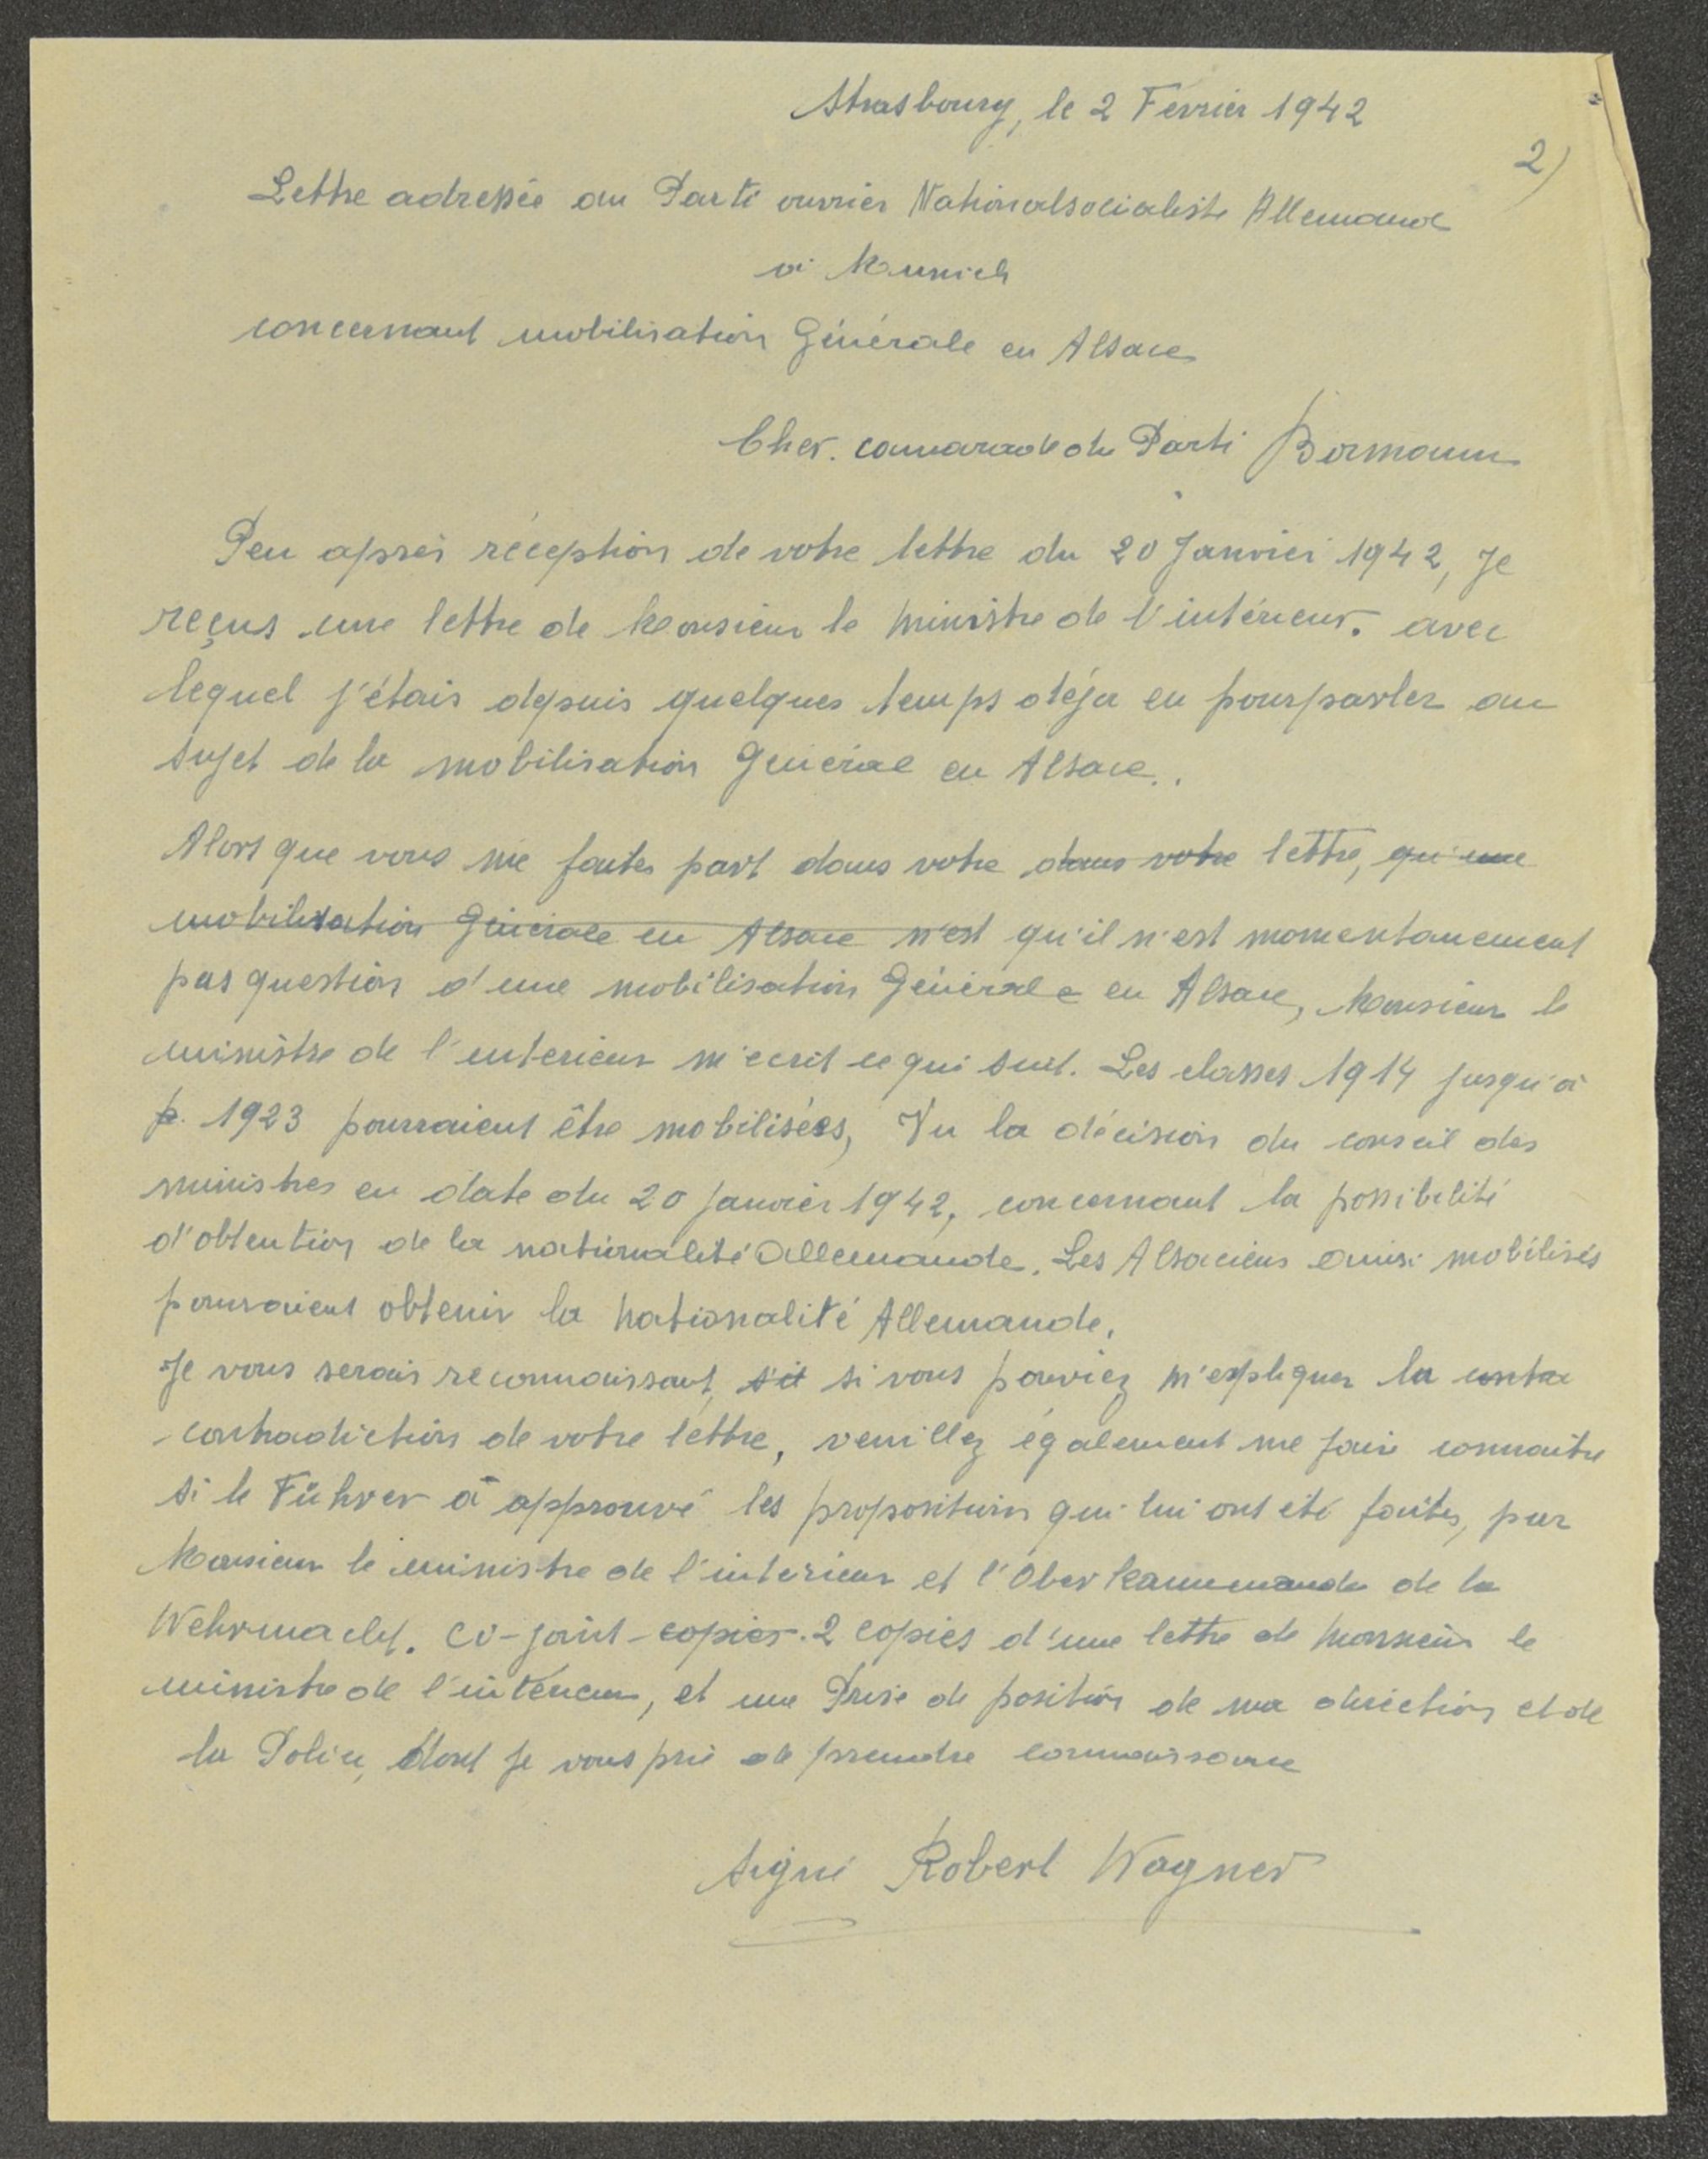 Strasbourg, le 2 Février 1942
2)
Lettre adressée au Parti ouvrier Nationalsocialiste Allemand
à Munich
concernant mobilisation Générale en Alsace
Cher. camarade du Parti Bormann
Peu après réception de votre lettre du 20 Janvier 1942, Je
reçus une lettre de Monsieur le Ministre de l'intérieur. avec
lequel j'étais depuis quelques temps déja en pourparler au
sujet de la mobilisation Général en Alsace..
Alors que vous me faites part dans votre dans votre lettre, qu'une
mobilisation Générale en Alsace n'est qu'il n'est momentanement
pas question d'une mobilisation Générale en Alsace, Monsieur le
ministre de l'interieur m'ecrit ce qui suit. Les classes 1914 jusqu'à
p. 1923 pourraient être mobilisées, Vu la décision du conseil des
ministres en date du 20 janvier 1942, concernant la possibilité
d'obtention de la nationalité Allemande. Les Alsaciens ainsi mobilisés
pourraient obtenir la Nationalité Allemande.
Je vous serais reconnaissant, s'it si vous pouviez m'expliquer la contra
contradiction de votre lettre, veuillez également me faire connaitre
si le Führer à approuvé les propositions qui lui ont été faites, par
Monsieur le ministre de l'interieur et l'Oberkommando de la
Wehrmacht. Ci-joint copies. 2 copies d'une lettre de Monsieur le
ministre de l'intérieur, et une Prise de position de ma direction et de
la Police, dont je vous prie de prendre connaissance
signé Robert Wagner